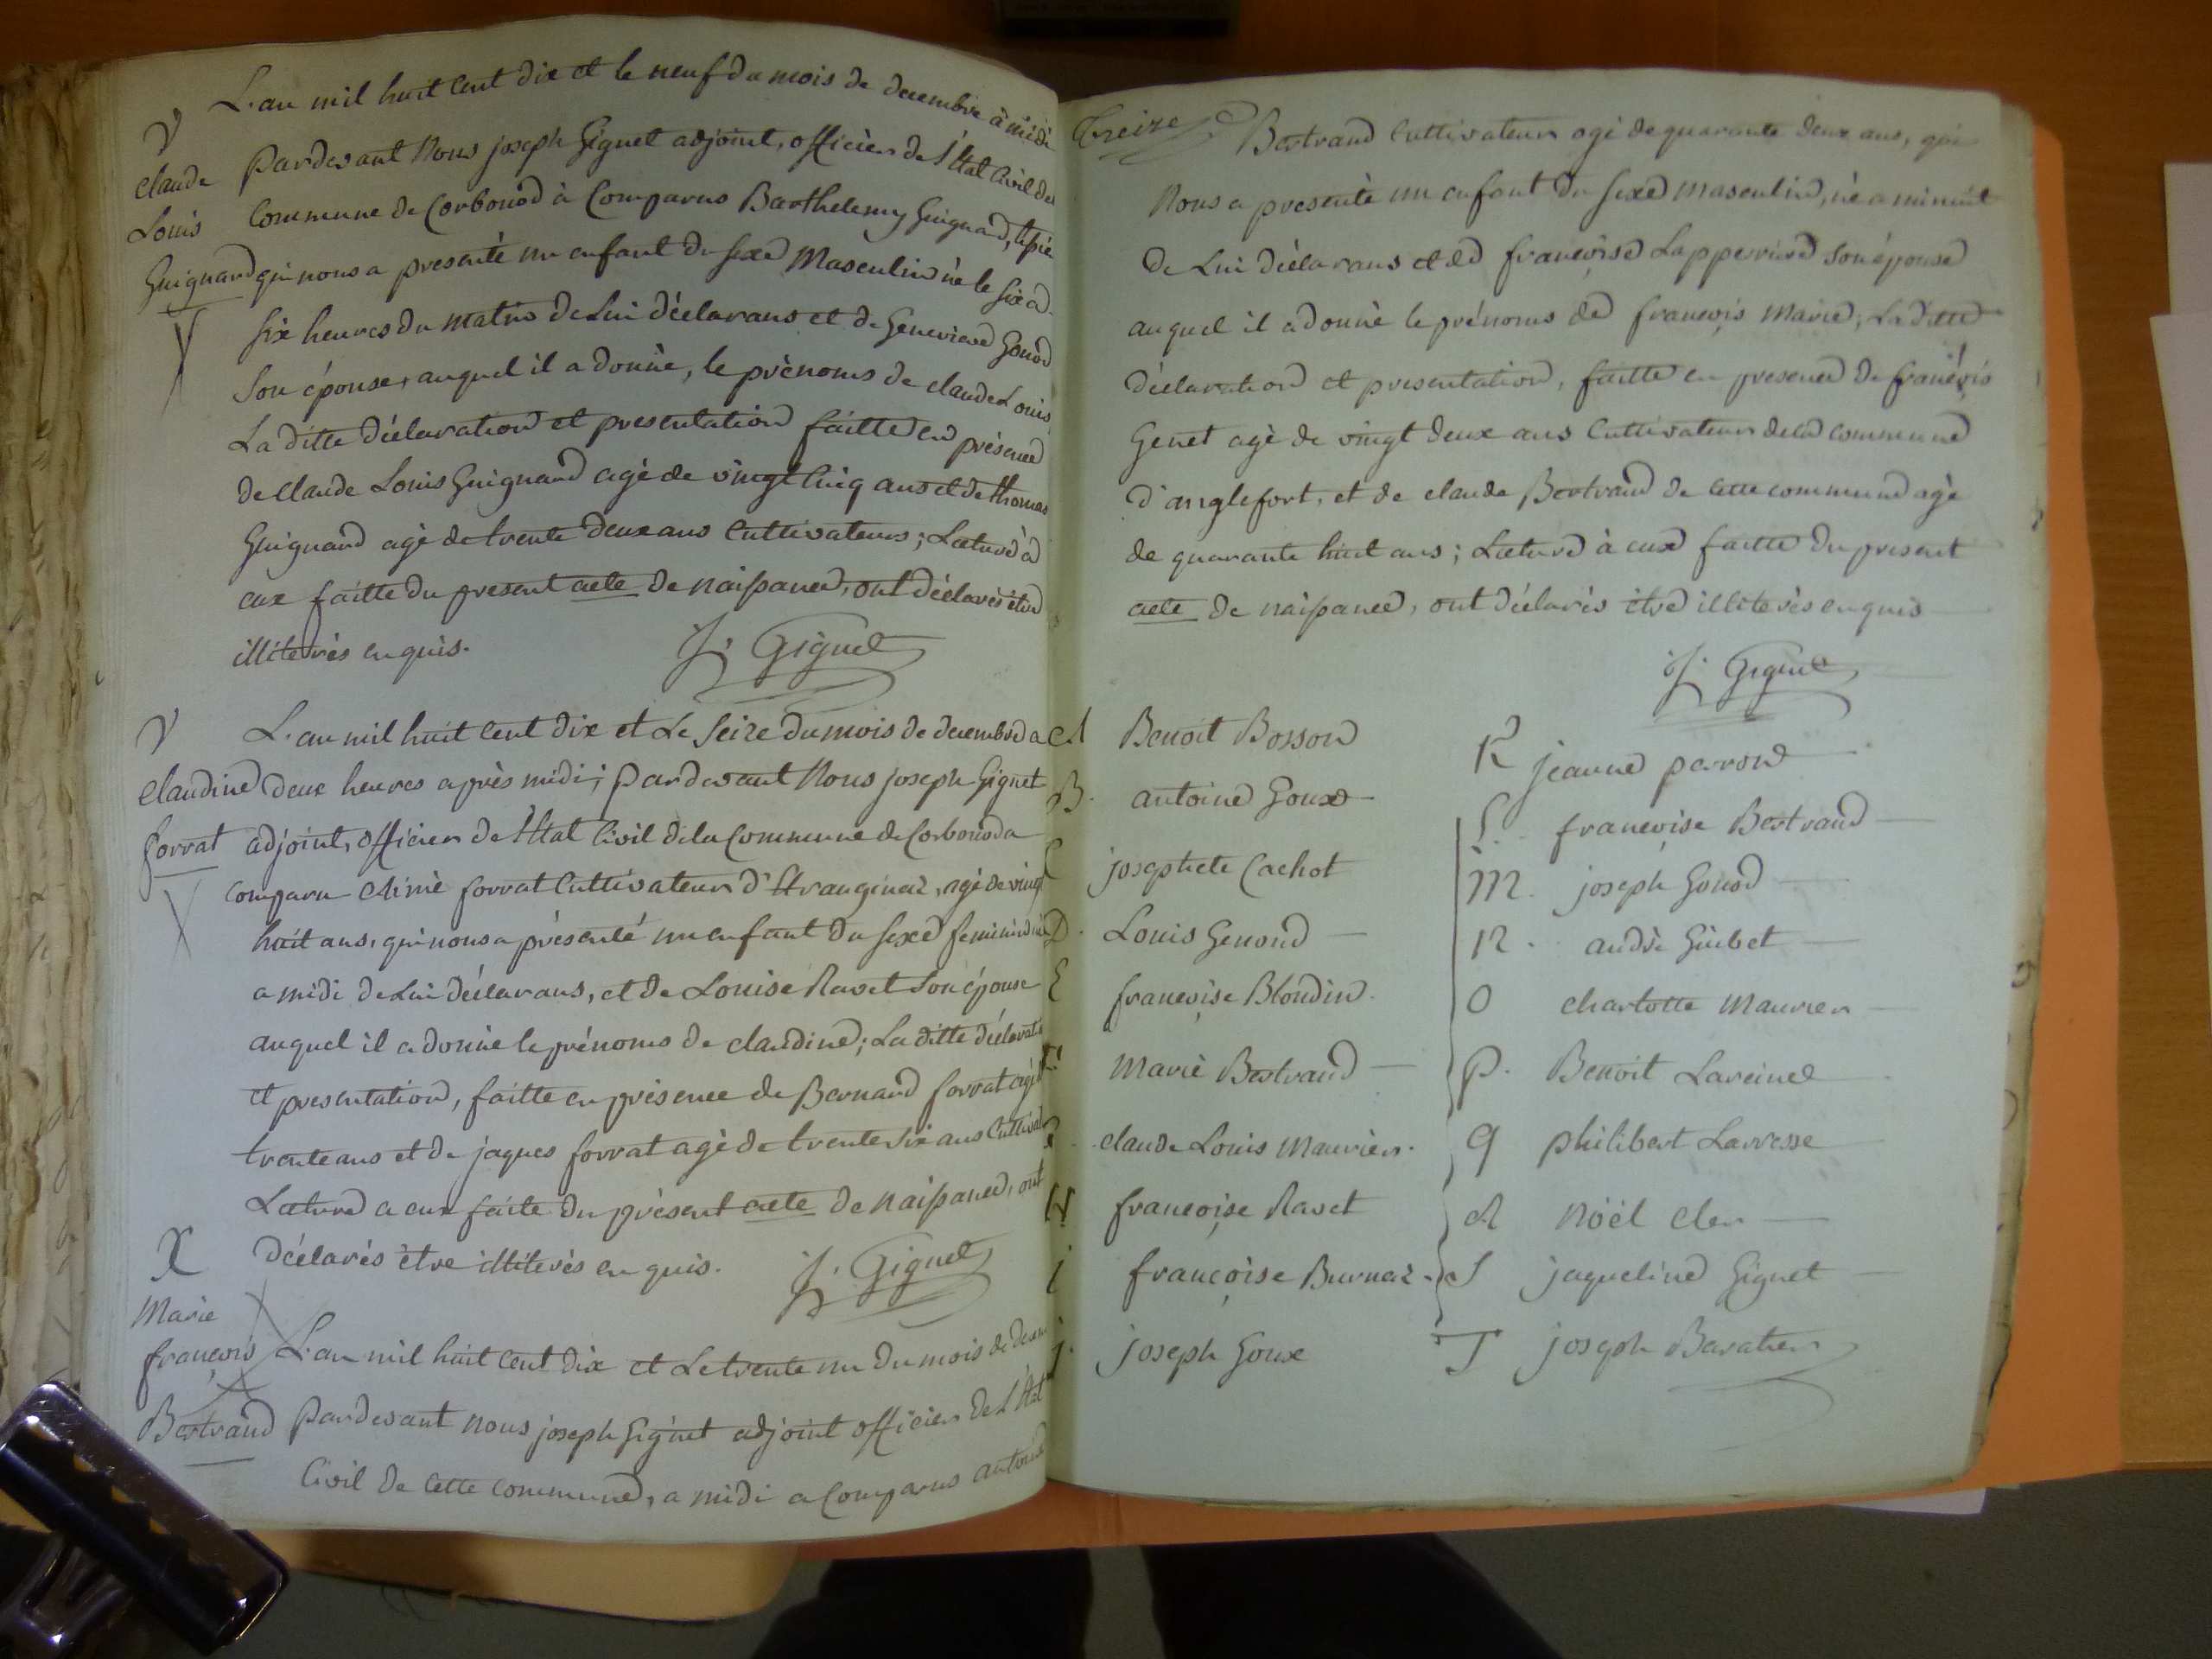 V
L'an mil huit Cent dix et le neuf du mois de decembre à midi
claude Pardevant Nous joseph Gignet adjoint, officier de l'Etat Civil de
Louis Commune de Corbonod à Comparus Barthelemy Guignard,
Guignard qui nous a presenté un enfant du sexe Masculin né le six a
six heures du matin de Lui déclarans et de Genevieve Gonod
Son épouse, auquel il a donné, le prénoms de claude Louis
La ditte déclaration et presentation faitte en présence
de Claude Louis Guignard agé de vingt Cinq ans et de thomas
Guignard agé de trente deux ans Cultivateurs; Lecture à
eux faitte du present acte de naissance, ont déclarés être
illiterés enquis.
J. Gignet
V
L'an mil huit Cent dix et Le Seize du mois de decembre a
Claudine deux heures après midi; Pardevant Nous joseph Gignet
forrat adjoint, officier de l'Etat Civil de la Commune de Corbonod a
comparu Aimé forrat Cultivateur d'Etranginaz, agé de vingt
huit ans, qui nous a présenté un enfant du sexe feminin né
a midi de Lui déclarans, et de Louise Ravet Son épouse
auquel il a donné le prénoms de claudine; La ditte déclarati
et presentation, faitte en présence de Bernard forrat agé
trente ans et de jaques forrat agé de trente six ans Cultivat
Lecture a eux faite du présent acte de naissance, ont
déclarés être illiterés enquis.
J. Gignet
X
Marie
françois L'an mil huit Cent dix et Le trente un du mois de decem
Bertrand Pardevant nous joseph Gignet adjoint officier de L'Etat
Civil de Cette commune, a midi a Comparus antoine
Treize
Bertrand Cultivateur agé de quarante deux ans, qui
Nous a presenté un enfant du sexe masculin, né a minuit
de Lui déclarans et de françoise Lapperrière son épouse
auquel il a donné le prénoms de françois Marie; La ditte
déclaration et presentation, faitte en presence de françois
Genet agé de vingt deux ans Cultivateur de la commune
d'anglefort, et de claude Bertrand de Cette commune agé
de quarante huit ans; Lecture à eux faitte du present
acte de naissance, ont déclarés être illiterés enquis
J. Gignet
A Benoit Bosson
B. antoine Goux
C josephete Cachot
D. Louis Genond
E françoise Blondin.
F Marie Bertrand
claude Louis Maurier.
H françoise Ravet
i françoise Burnaz.
j. joseph Goux
K jeanne perron
L. françoise Bertrand
M. joseph Gonod
N. andré Guibet
O charlotte Maurier
P. Benoit Lareine
q philibert Larresse
R Nöel Cler
S jaqueline Gignet
T joseph Baratier